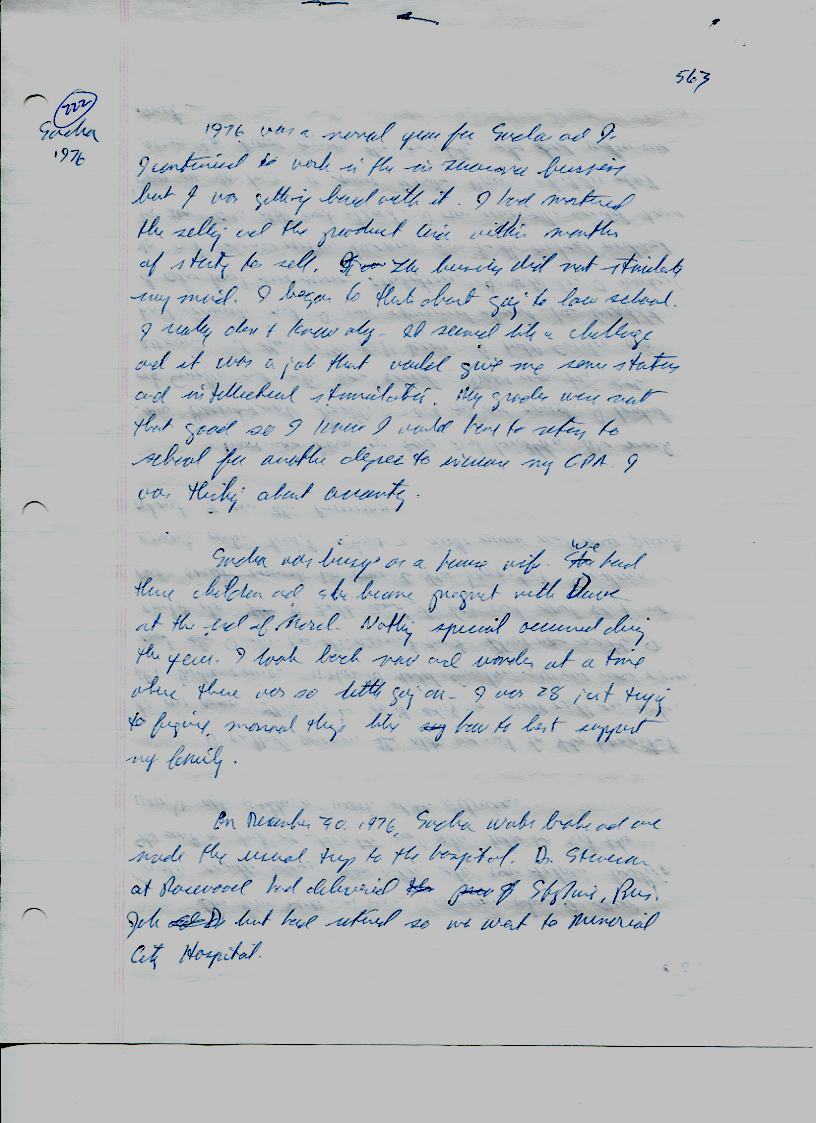 563
222
Sandra
1976
1976 was a normal year for Sandra and I.
I continued to work in the insurance business
but I was getting bored with it. I had mastered
the selling and the product line within months
of starting to sell. The business did not stimulate
my mind. I began to think about going to law school.
I really don't know why - It seemed like a challenge
and it was a job that would give me some status
and intellectual stimulation. My grades were not
that good so I knew I would have to return to
school for another degree to increase my GPA. I
was thinking about accounting.
Sandra was busy as a house wife. We had
three children and she became pregnant with
at the end of March. Nothing special occurred during
the year. I look back now and wonder at a time
where there was so little going on - I was 28 just trying
to figure normal things like how to best support
my family.
On December 1976, Sandra water broke and we
made the usual trip to the hospital. Dr.
at Rosewood had delivered
John but had retired so we went to Memorial
City Hospital.